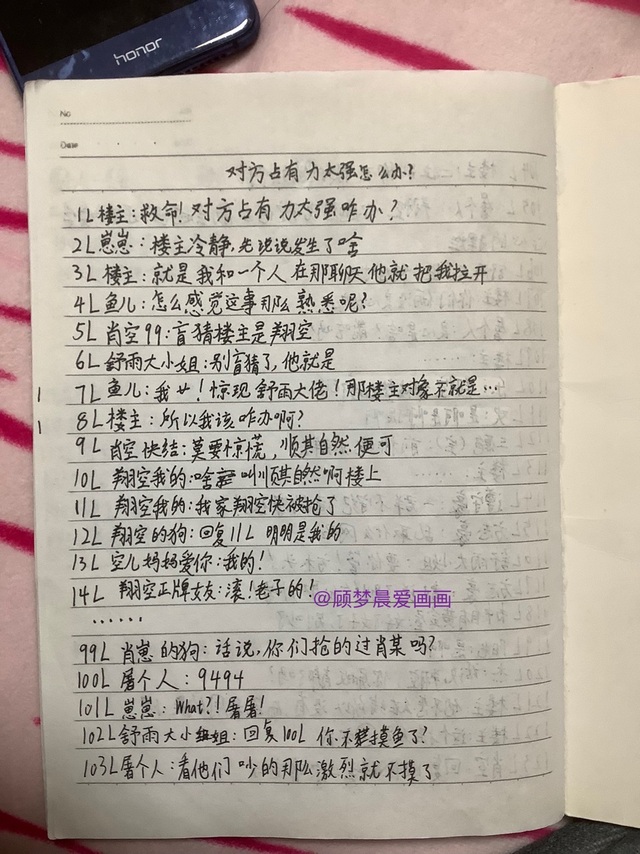 honor
No
Date
对方占有力太强怎么办?
1L楼主:救命!对方占有力太强咋办?
2L崽崽:楼主冷静,先说说发生了啥
3L楼主:就是我和一个人在那聊天他就把我拉开
4L鱼儿:怎么感觉这事那么熟悉呢?
5L肖空99:盲猜楼主是翔空
6L舒雨大小姐:别盲猜了,他就是
7L鱼儿:我艹!惊现舒雨大佬!那楼主对象不就是…
8L楼主:所以我该咋办啊?
9L肖空快结:莫要惊慌,顺其自然便可
10L翔空我的:啥叫顺其自然啊楼上
11L翔空我的:我家翔空快被抢了
12L翔空的狗:回复11L 明明是我的
13L空儿妈妈爱你:我的!
14L翔空正牌女友:滚!老子的!
@顾梦晨爱画画
……
99L肖崽的狗:话说,你们抢的过肖某吗?
100L屠个人:9494
101L崽崽:What?!屠屠!
102L舒雨大小姐:回复100L你不摸鱼了?
103L屠个人:看他们吵的那么激烈就不摸了